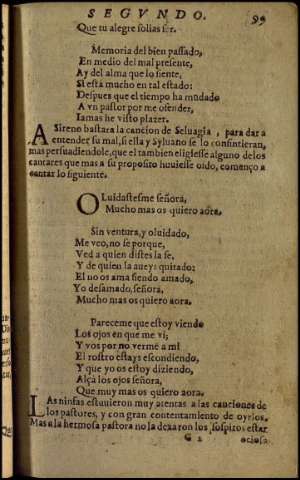 SEGVNDO. 99
Que tu alegre solias ser.
Memoria del bien passado,
En medio del mal presente,
Ay del alma que lo siente,
Si està mucho en tal estado:
Despues que el tiempo ha mudado
A vn pastor por me ofender,
Iamas he visto plazer.
A Sireno bastara la cancion de Seluagia, para dar a
entender su mal, si ella y Syluano se lo consintieran,
mas persuadiendole, que el tambien eligiesse alguno de los
cantares que mas a su proposito houiesse oido, començo a
cantar lo siguiente.
OLuidastesme señora,
Mucho mas os quiero aora.
Sin ventura, y oluidado,
Me veo, no se porque,
Ved a quien distes la fe,
Y de quien la aueys quitado:
El no os ama siendo amado,
Yo desamado, señora,
Mucho mas os quiero aora.
Pareceme que estoy viendo
Los ojos en que me vi;
Y vos por no verme a mi
El rostro estays escondiendo,
Y que yo os estoy diziendo,
Alçà los ojos señora,
Que muy mas os quiero aora.
LAs ninfas estuuieron muy atentas a las canciones de
los pastores, y con gran contentamiento de oyrlos,
Mas a la hermosa pastora no la dexaron los sospiros estar
G 2 ociosa